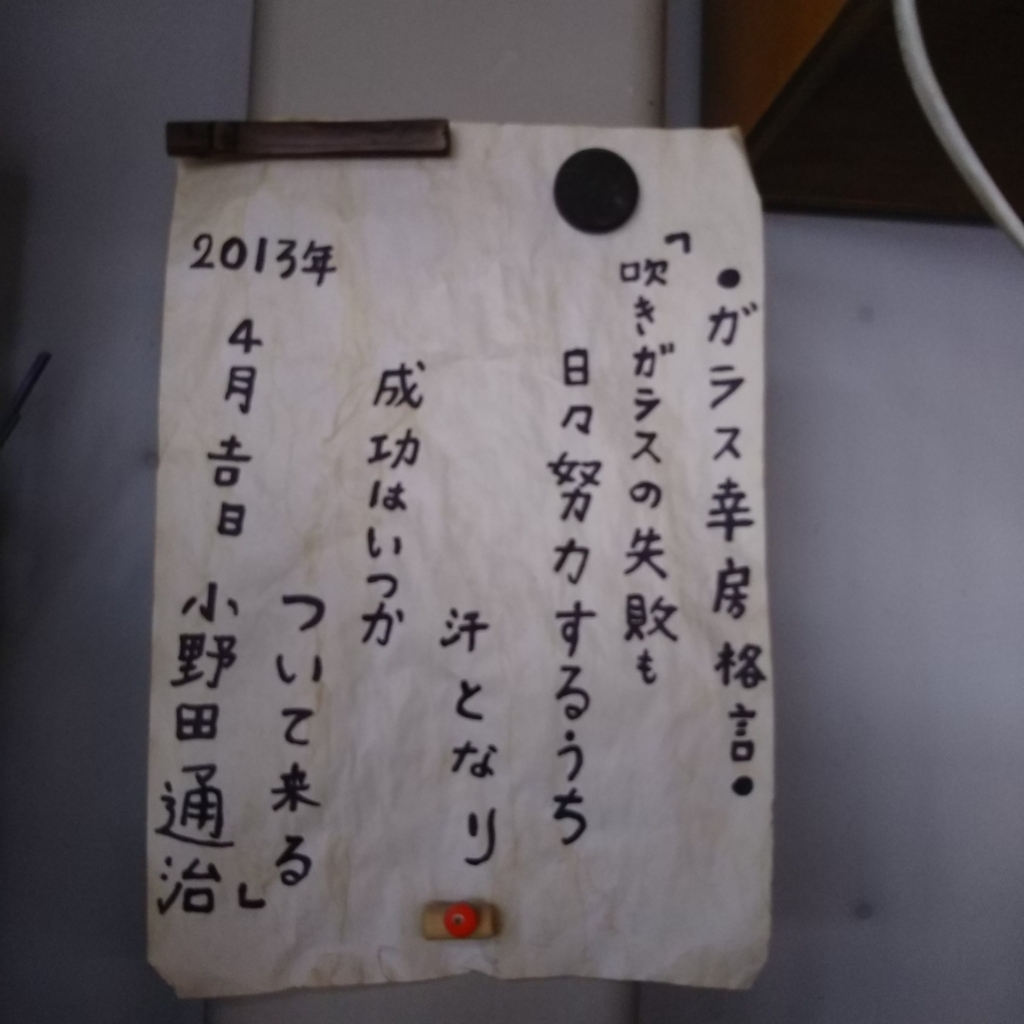 ●ガラス幸房格言●
「吹きガラスの失敗も
日々努力するうち
汗となり
成功はいつか
ついて来る」
2013年
4月吉日 小野田通治